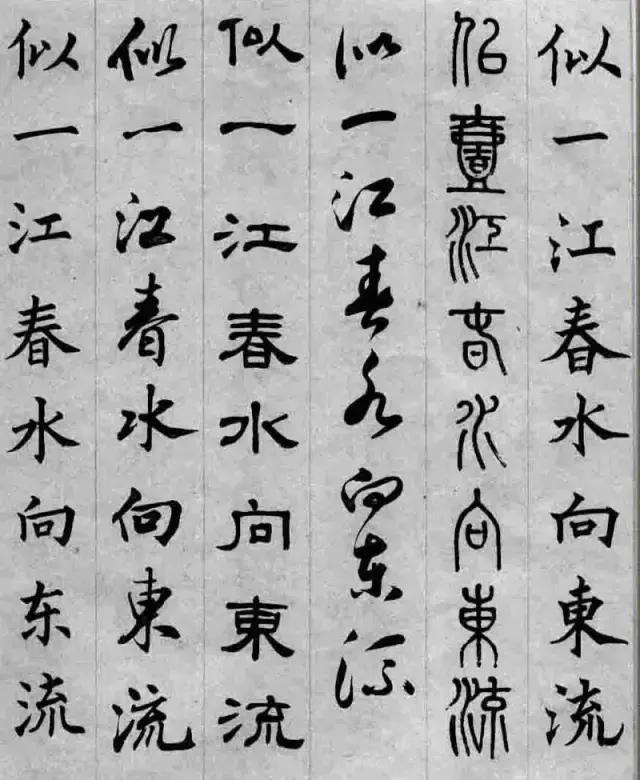 似一江春水向東流
似壹江春水向東流
似一江春水向东流
似一江春水向東流
似一江春水向東流
似一江春水向东流